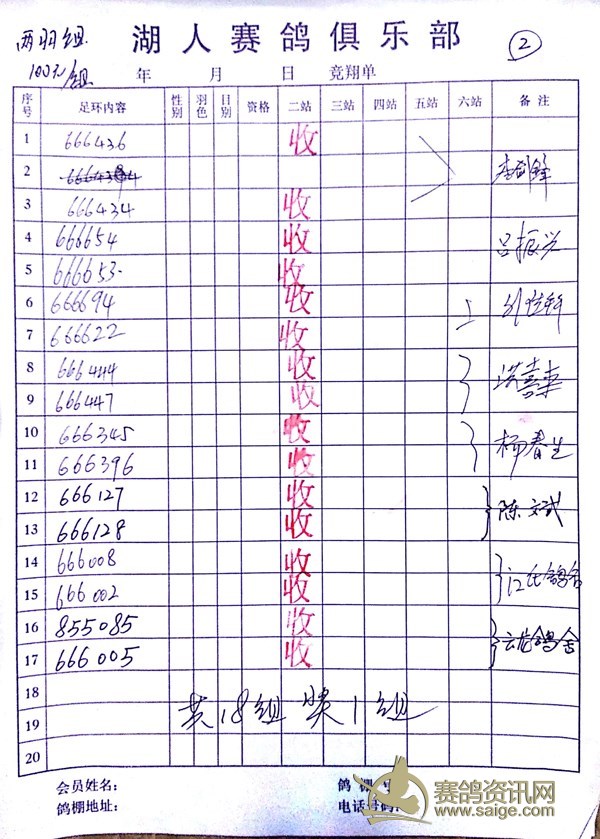 两羽组 湖人赛鸽俱乐部 ②
100元/组 年 月 日 竞翔单
序号 足环内容 性别 羽色 目别 资格 二站 三站 四站 五站 六站 备注
1 666436 收
2 李剑锋
3 666434 收
4 666654 收 吕振兴
5 666653 收
6 666694 收
7 666622 收
8 666444 收 洪喜束
9 666447 收
10 666345 收 杨春生
11 666396 收
12 666127 收 陈文斌
13 666128 收
14 666008 收 江氏鸽舍
15 666002 收
16 855085 收 云龙鸽舍
17 666005 收
18
共18组 奖1组
19
20
会员姓名: 鸽棚
鸽棚地址: 电话号码:
赛鸽资讯网
www.saige.com